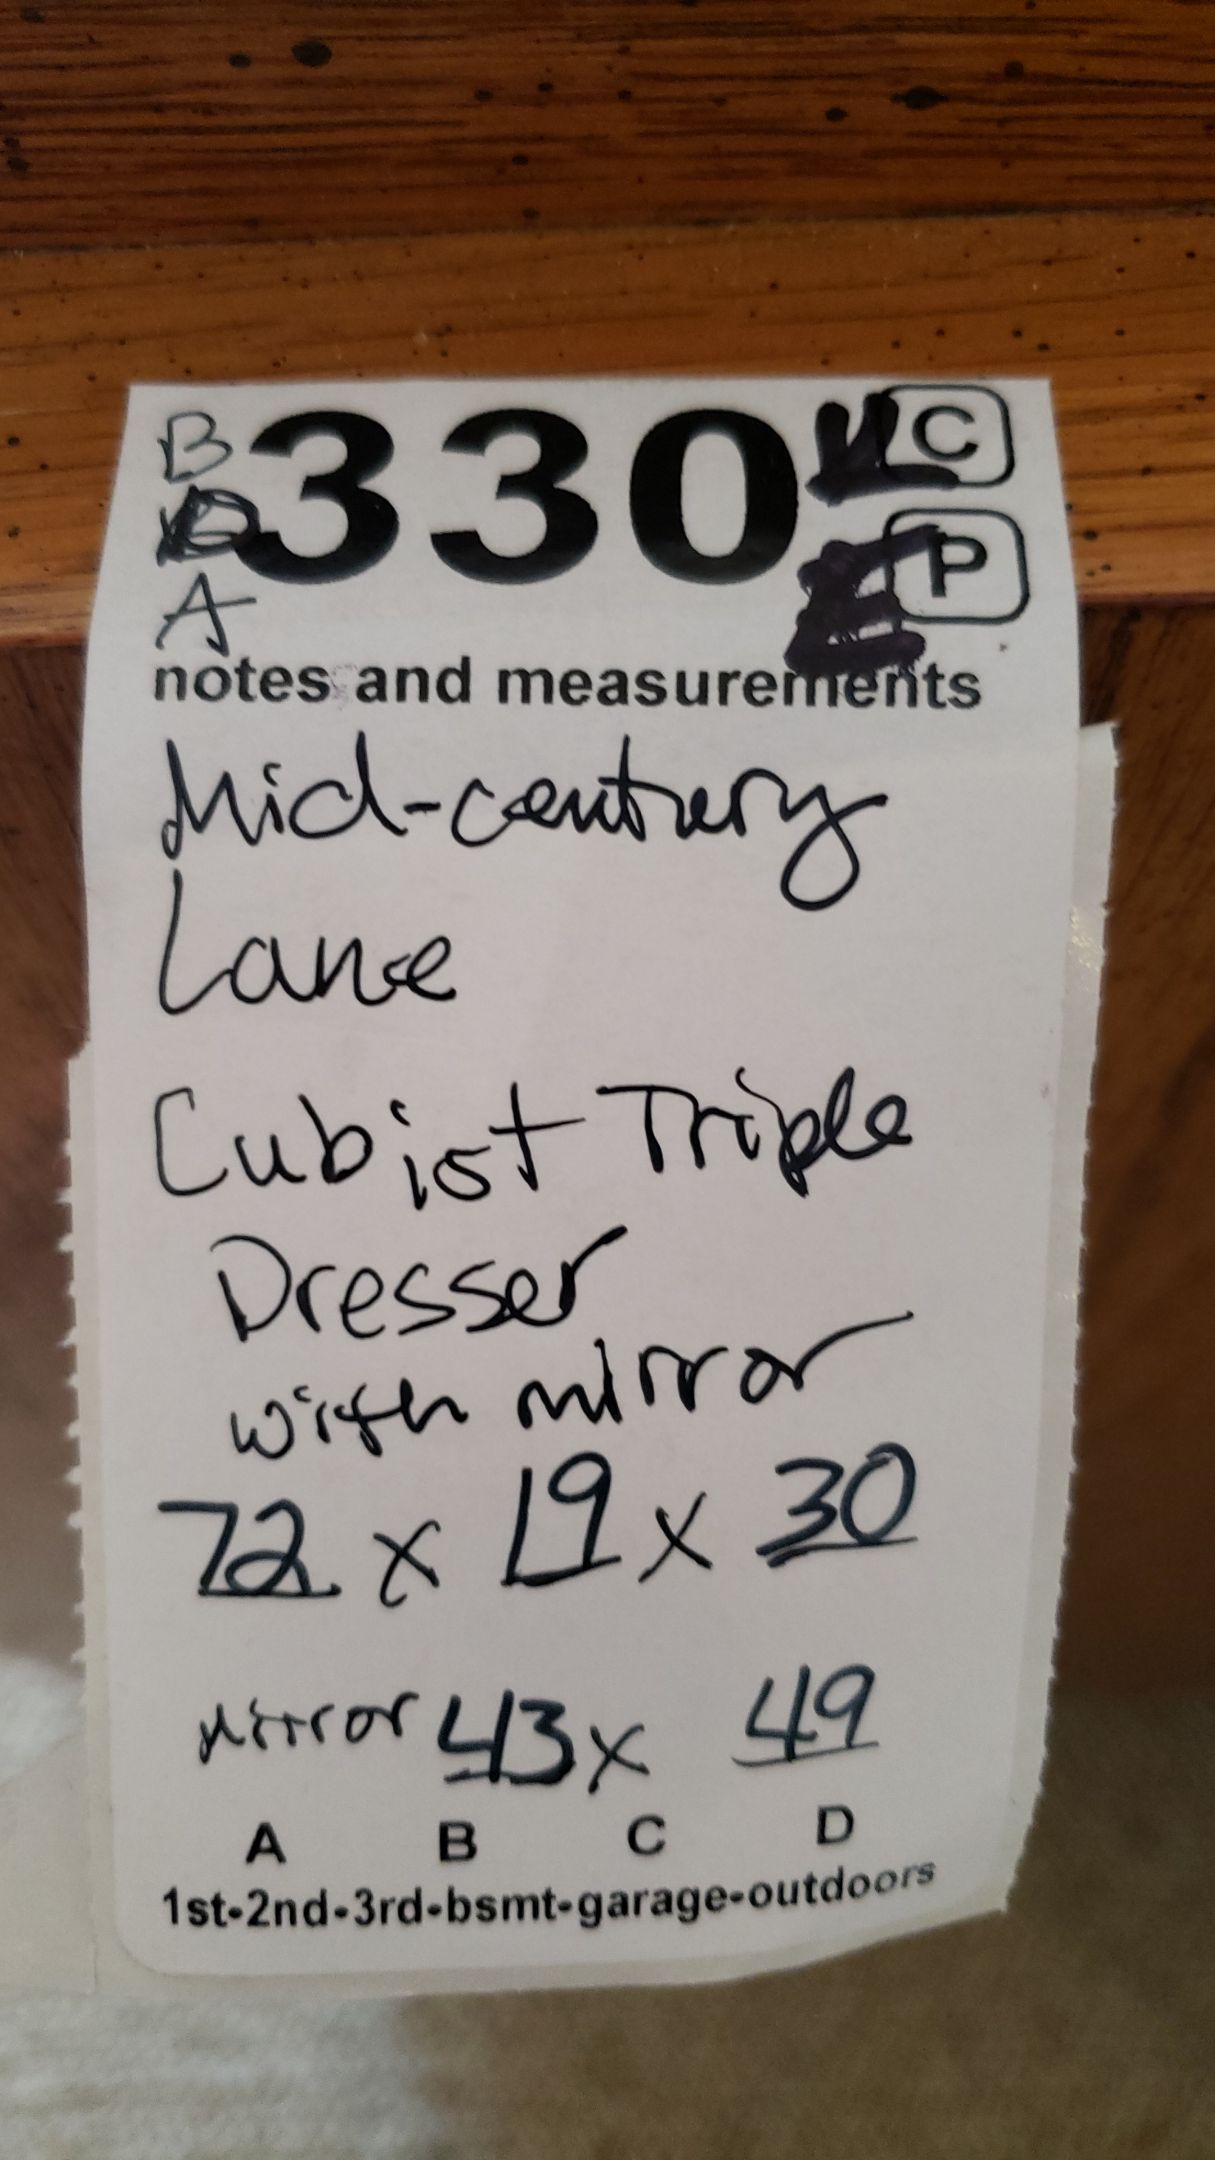 B
330
C
P
A
notes and measurements
Mid-century
Lane
Cubist Triple
Dresser
with mirror
72 x 19 x 30
Mirror 43 x 49
A B C D
1st-2nd-3rd-bsmt-garage-outdoors